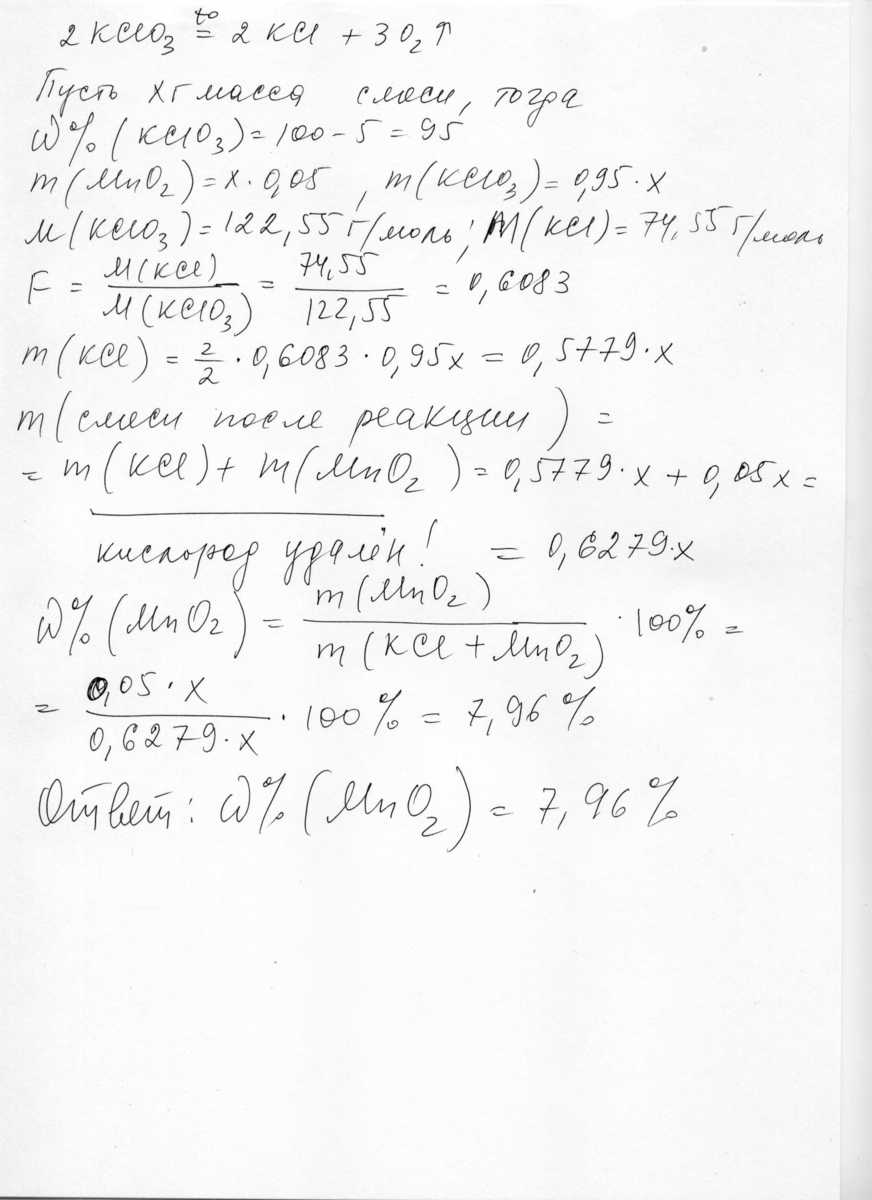 2 KClO₃ t° = 2 KCl + 3O₂↑
Пусть x г масса смеси, тогда
ω% (KClO₃) = 100 - 5 = 95
m(MnO₂) = x · 0,05 , m(KClO₃) = 0,95 · x
M(KClO₃) = 122,55 г/моль; M(KCl) = 74,55 г/моль
F = M(KCl) / M(KClO₃) = 74,55 / 122,55 = 0,6083
m(KCl) = 2/2 · 0,6083 · 0,95x = 0,5779 · x
m(смеси после реакции) =
= m(KCl) + m(MnO₂) = 0,5779 · x + 0,05x =
кислород удалён! = 0,6279 · x
ω% (MnO₂) = m(MnO₂) / m(KCl + MnO₂) · 100% =
= 0,05 · x / 0,6279 · x · 100% = 7,96%
Ответ: ω% (MnO₂) = 7,96%